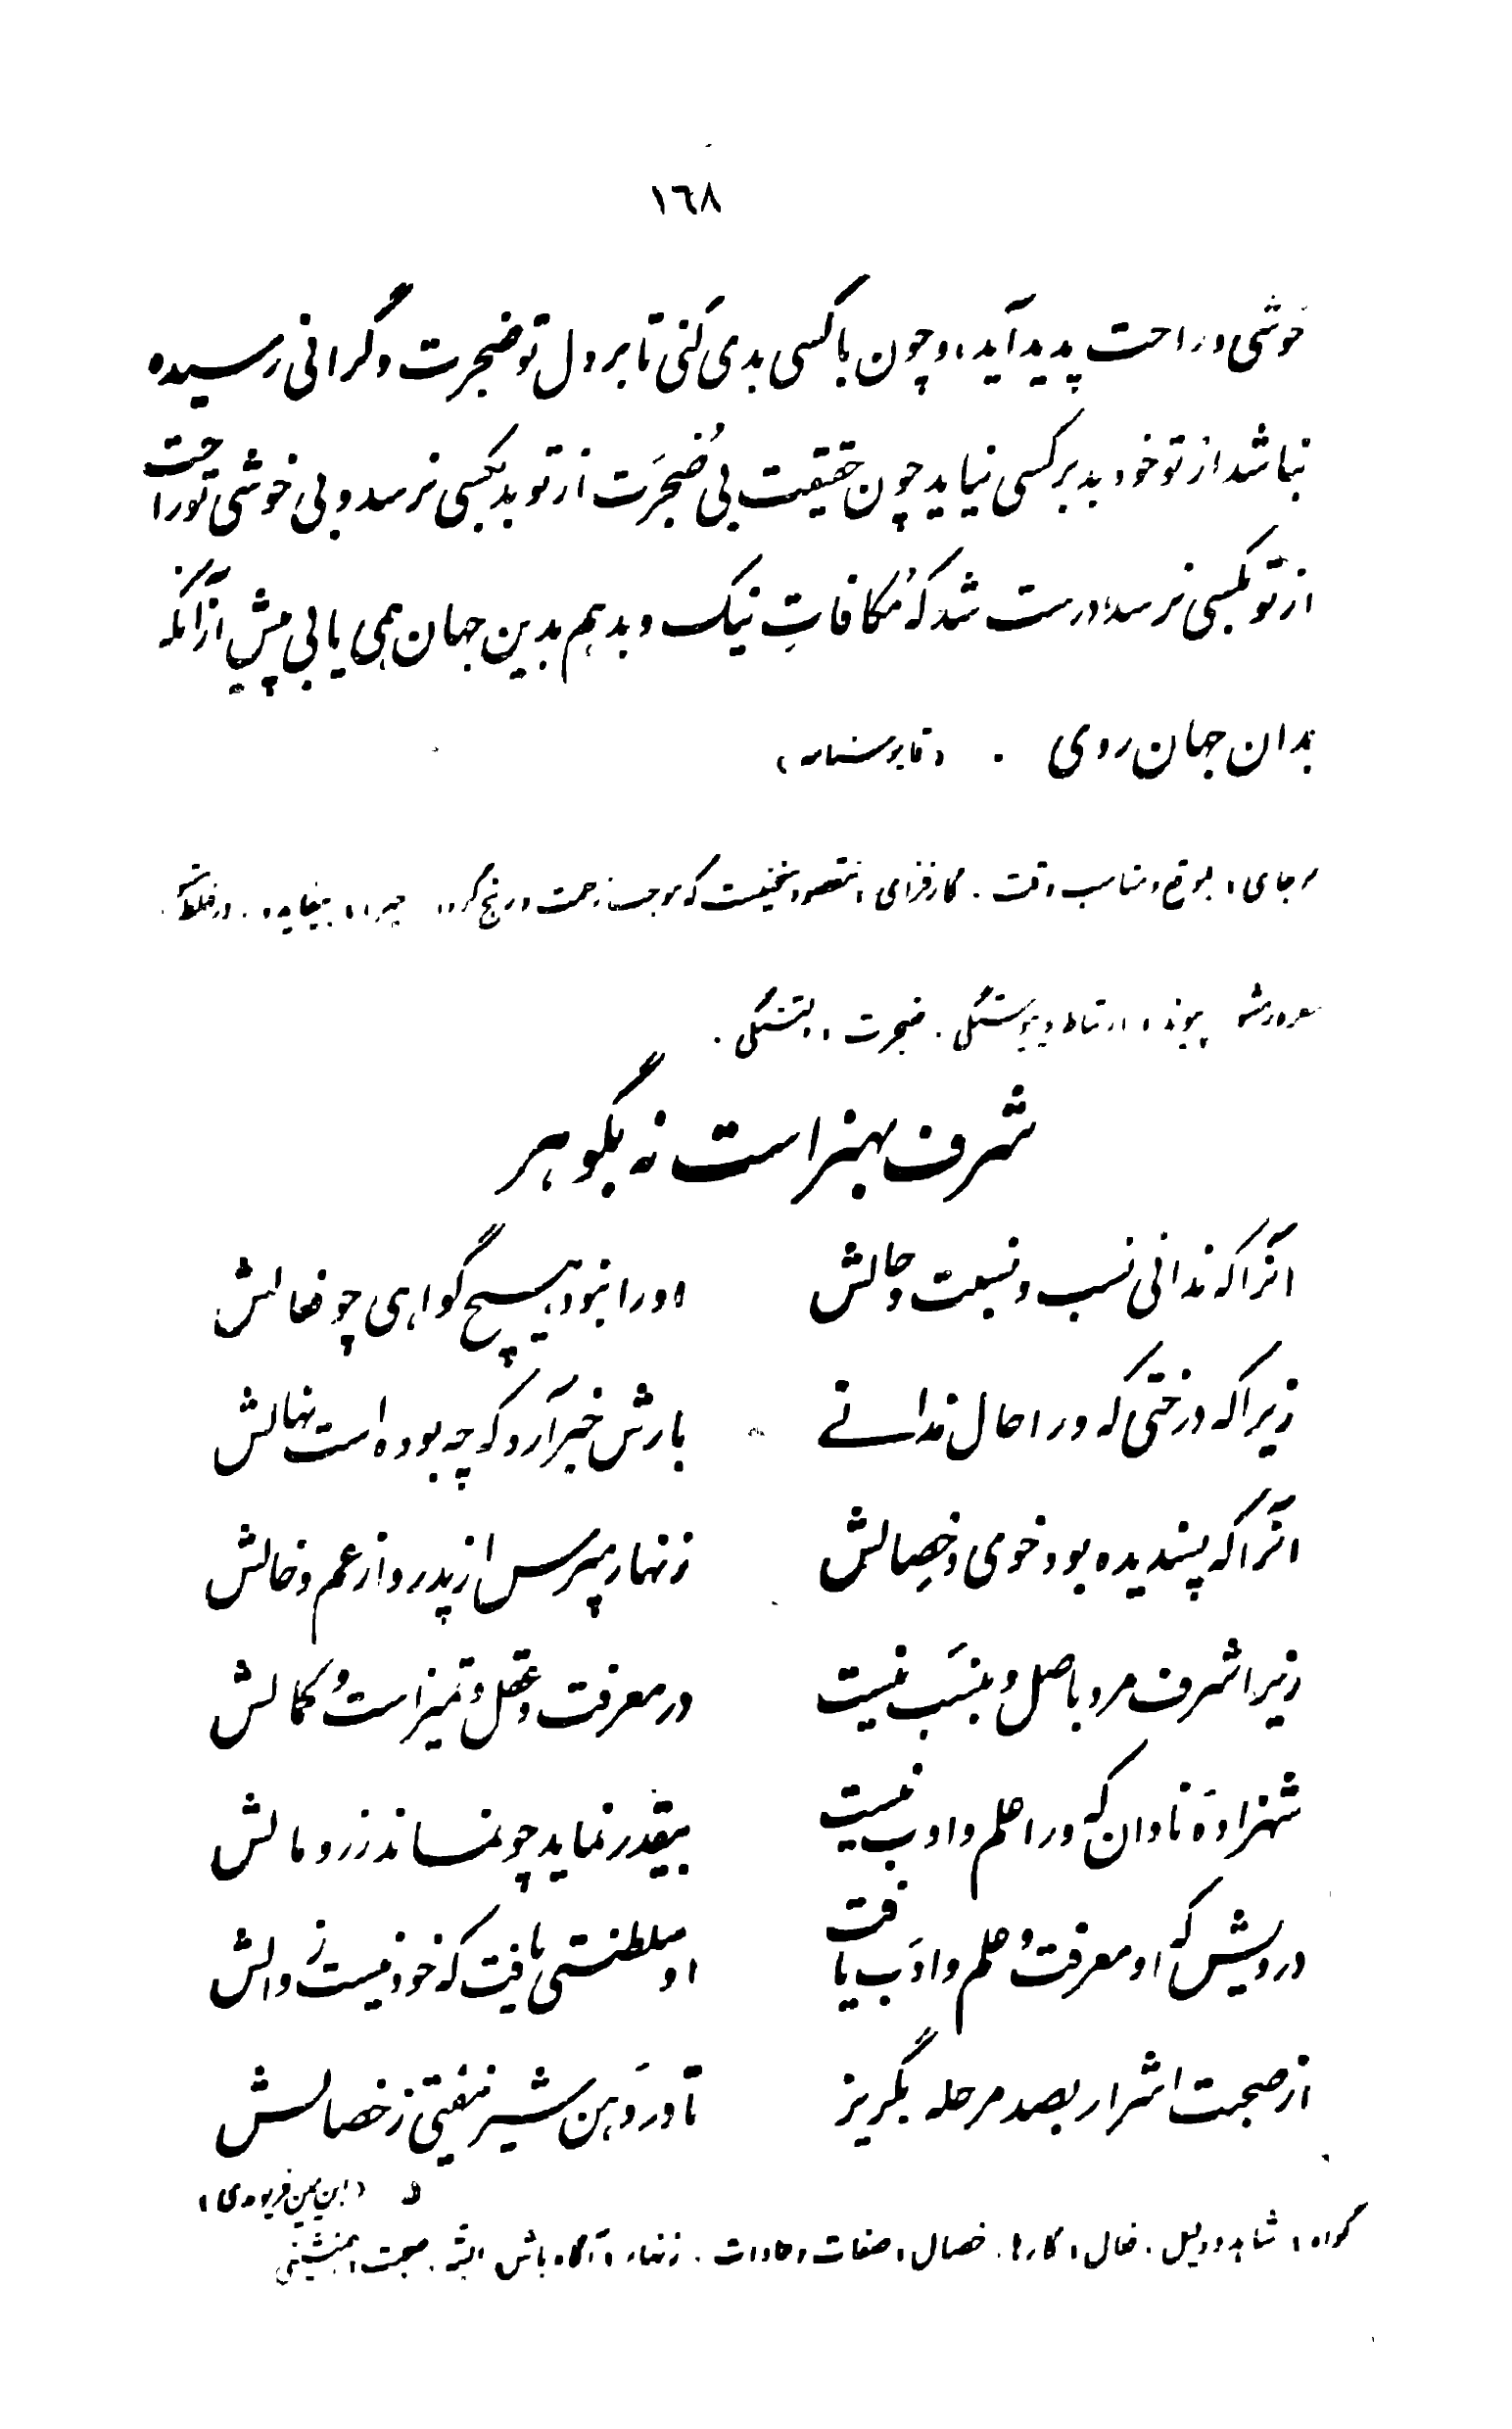 ١٦٨
خوشی و راحت پدید آید، و چون با کسی بدی کنی تا بر دل تو ضجرت و گرانی رسیده
نباشد از تو خود بد بر کسی نیاید چون حقیقت بی ضُجرَت از تو بد بکسی نرسد و بی خوشی تو راحت
از تو بکسی نرسد، درست شد که مُکافاتِ نیک و بد هم بدین جهان همی یابی پیش از آنکه
بدان جهان روی . (قابوسنامه)
بر جای، بموقع و مناسب وقت . کارفزای، مقصود سخنیست که موجب زحمت و رنج گردد بیفایده .
پیوند، ارتباط و پیوستگی . ضجرت، دلتنگی .
شرف بهنر است نه بگوهر
آنرا که ندانی نسب و نسبت و حالش اورا نبود هیچ گواهی چو فعالش
زیرا که درختی که ورا حال ندانی بارش خبر آرد که چه بوده است نهالش
آنرا که پسندیده بود خوی و خِصالش زنهار مپرس از پدر و از عم و خالش
زیرا شرف مرد باصل و بنسَب نیست در معرفت و عقل و تمیز است و کمالش
شهزادهٔ نادان که ورا علم و ادب نیست بیقدر نماید چو نماند زر و مالش
درویش که او معرفت و علم و ادَب یافت او سلطنتی یافت که خود نیست زوالش
از صحبت اشرار بصد مرحله بگریز تا در دَهن شیر نیفتی ز خصالش
(ابن یمین فریومدی)
گواه، شاهد و دلیل . فعال، کارها . خصال، صفات و عادات . زنهار، آگاه باش البته . صحبت، همنشینی